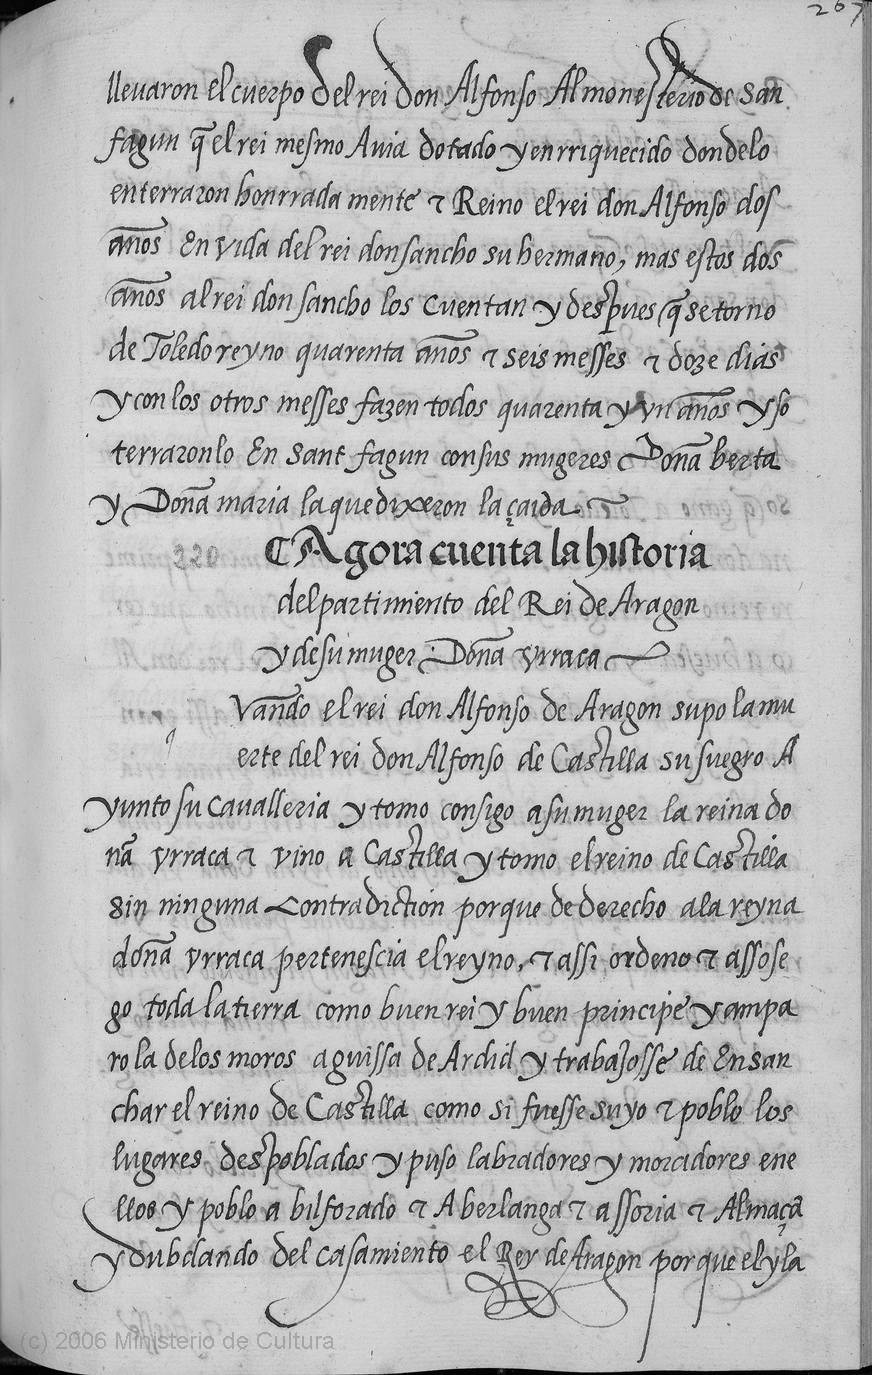 267
llevaron el cuerpo del rei don Alfonso Al monesterio de San
fagun q̃ el rei mesmo Avia dotado y enrriquecido donde lo
enterraron honrrada mente τ Reino el rei don Alfonso dos
años En vida del rei don sancho su hermano, mas estos dos
años al rei don sancho los cuentan y despues q̃ se torno
de Toledo reyno quarenta años τ seis messes τ doze dias
y con los otros messes fazen todos quarenta y vn años y so
terraronlo En Sant fagun con sus mugeres Doña berta
y Doña maria la que dixeron la çaida.
Agora cuenta la historia
del partimiento del Rei de Aragon
y de su muger Doña vrraca
q Vando el rei don Alfonso de Aragon supo la mu
erte del rei don Alfonso de Castilla su suegro A
yunto su cavalleria y tomo consigo a su muger la reina do
ña vrraca τ vino a Castilla y tomo el reino de Castilla
sin ninguna contradiction porque de derecho a la reyna
doña vrraca pertenescia el reyno, τ assi ordeno τ assose
go toda la tierra como buen rei y buen principe y ampa
ro la de los moros a guissa de Ardid y trabajosse de Ensan
char el reino de Castilla como si fuesse suyo τ poblo los
lugares despoblados y puso labradores y moradores ene
llos y poblo a bilforado τ A berlanga τ a ssoria τ Almaçã
y dubdando del casamiento el Rey de Aragon porque el y la
(c) 2006 Ministerio de Cultura